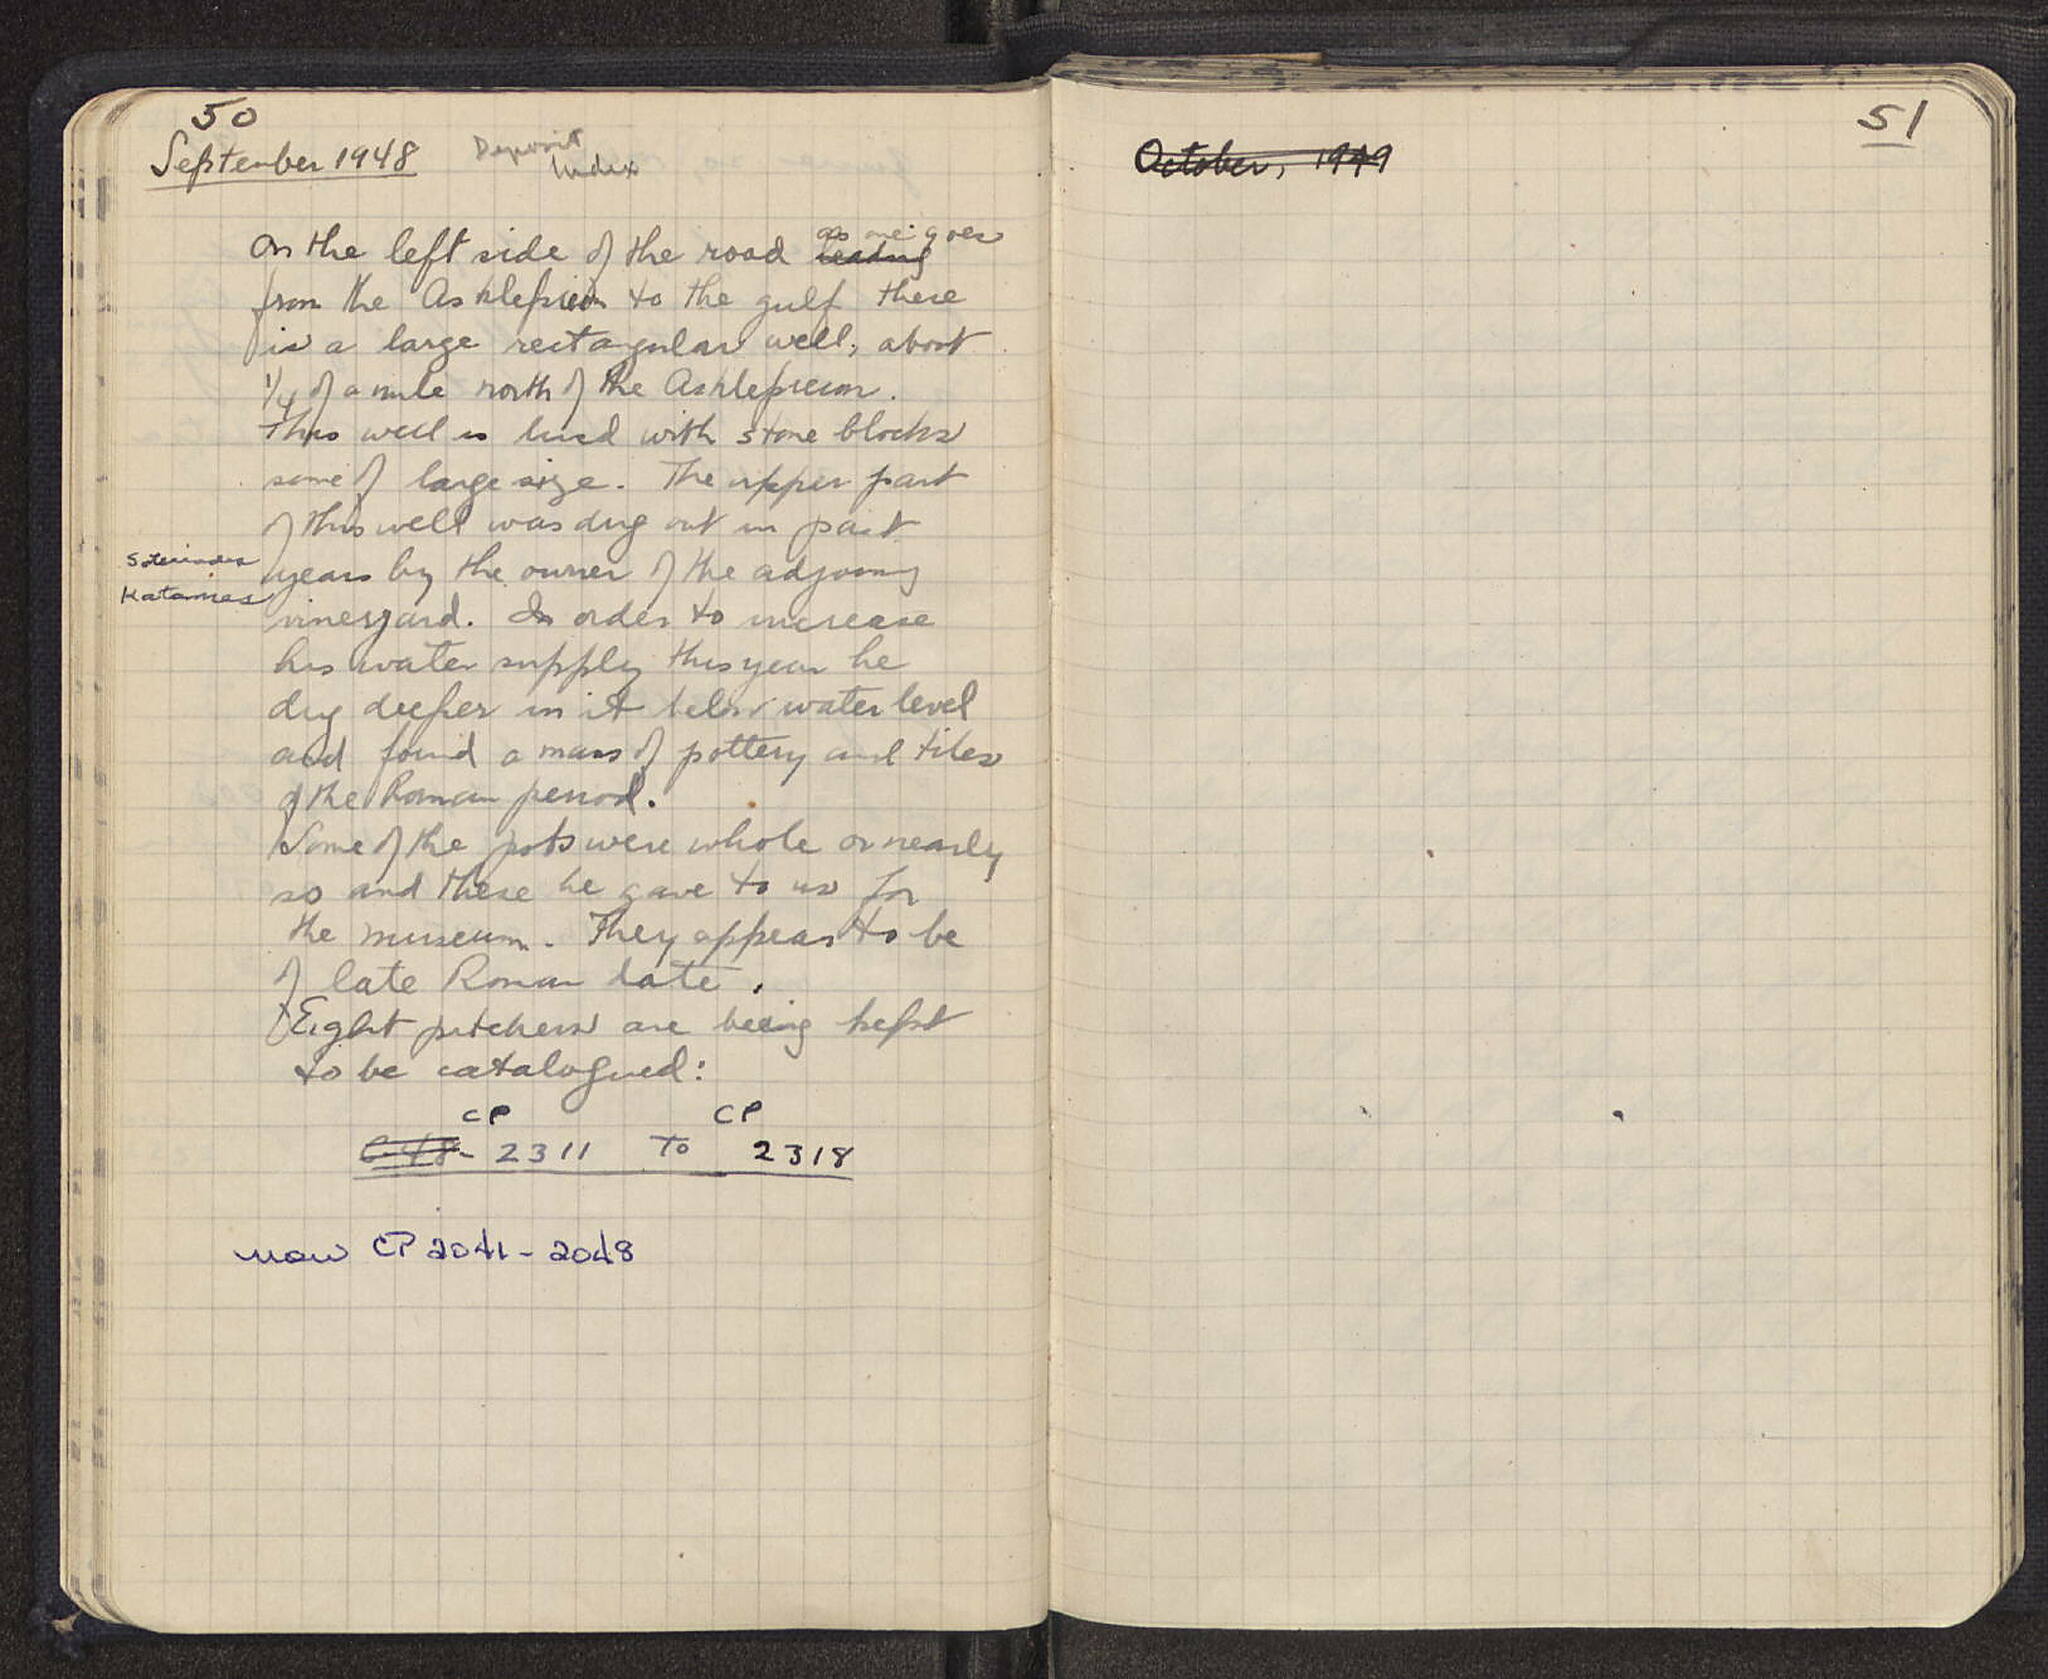 50
September 1948
Deposit
Index
On the left side of the road leading as one goes
from the Asklepieion to the gulf there
is a large rectangular well, about
1/4 of a mile north of the Asklepieion.
This well is lined with stone blocks
some of large size. The upper part
of this well was dug out in past
years by the owner of the adjoining
vineyard. In order to increase
his water supply this year he
dug deeper in it below water level
and found a mass of pottery and tiles
of the Roman period.
Some of the pots were whole or nearly
so and these he gave to us for
the museum. They appear to be
of late Roman date.
Eight pitchers are being kept
to be catalogued:
CP CP
C-48- 2311 To 2318
now CP 2041 - 2048
51
October, 1949